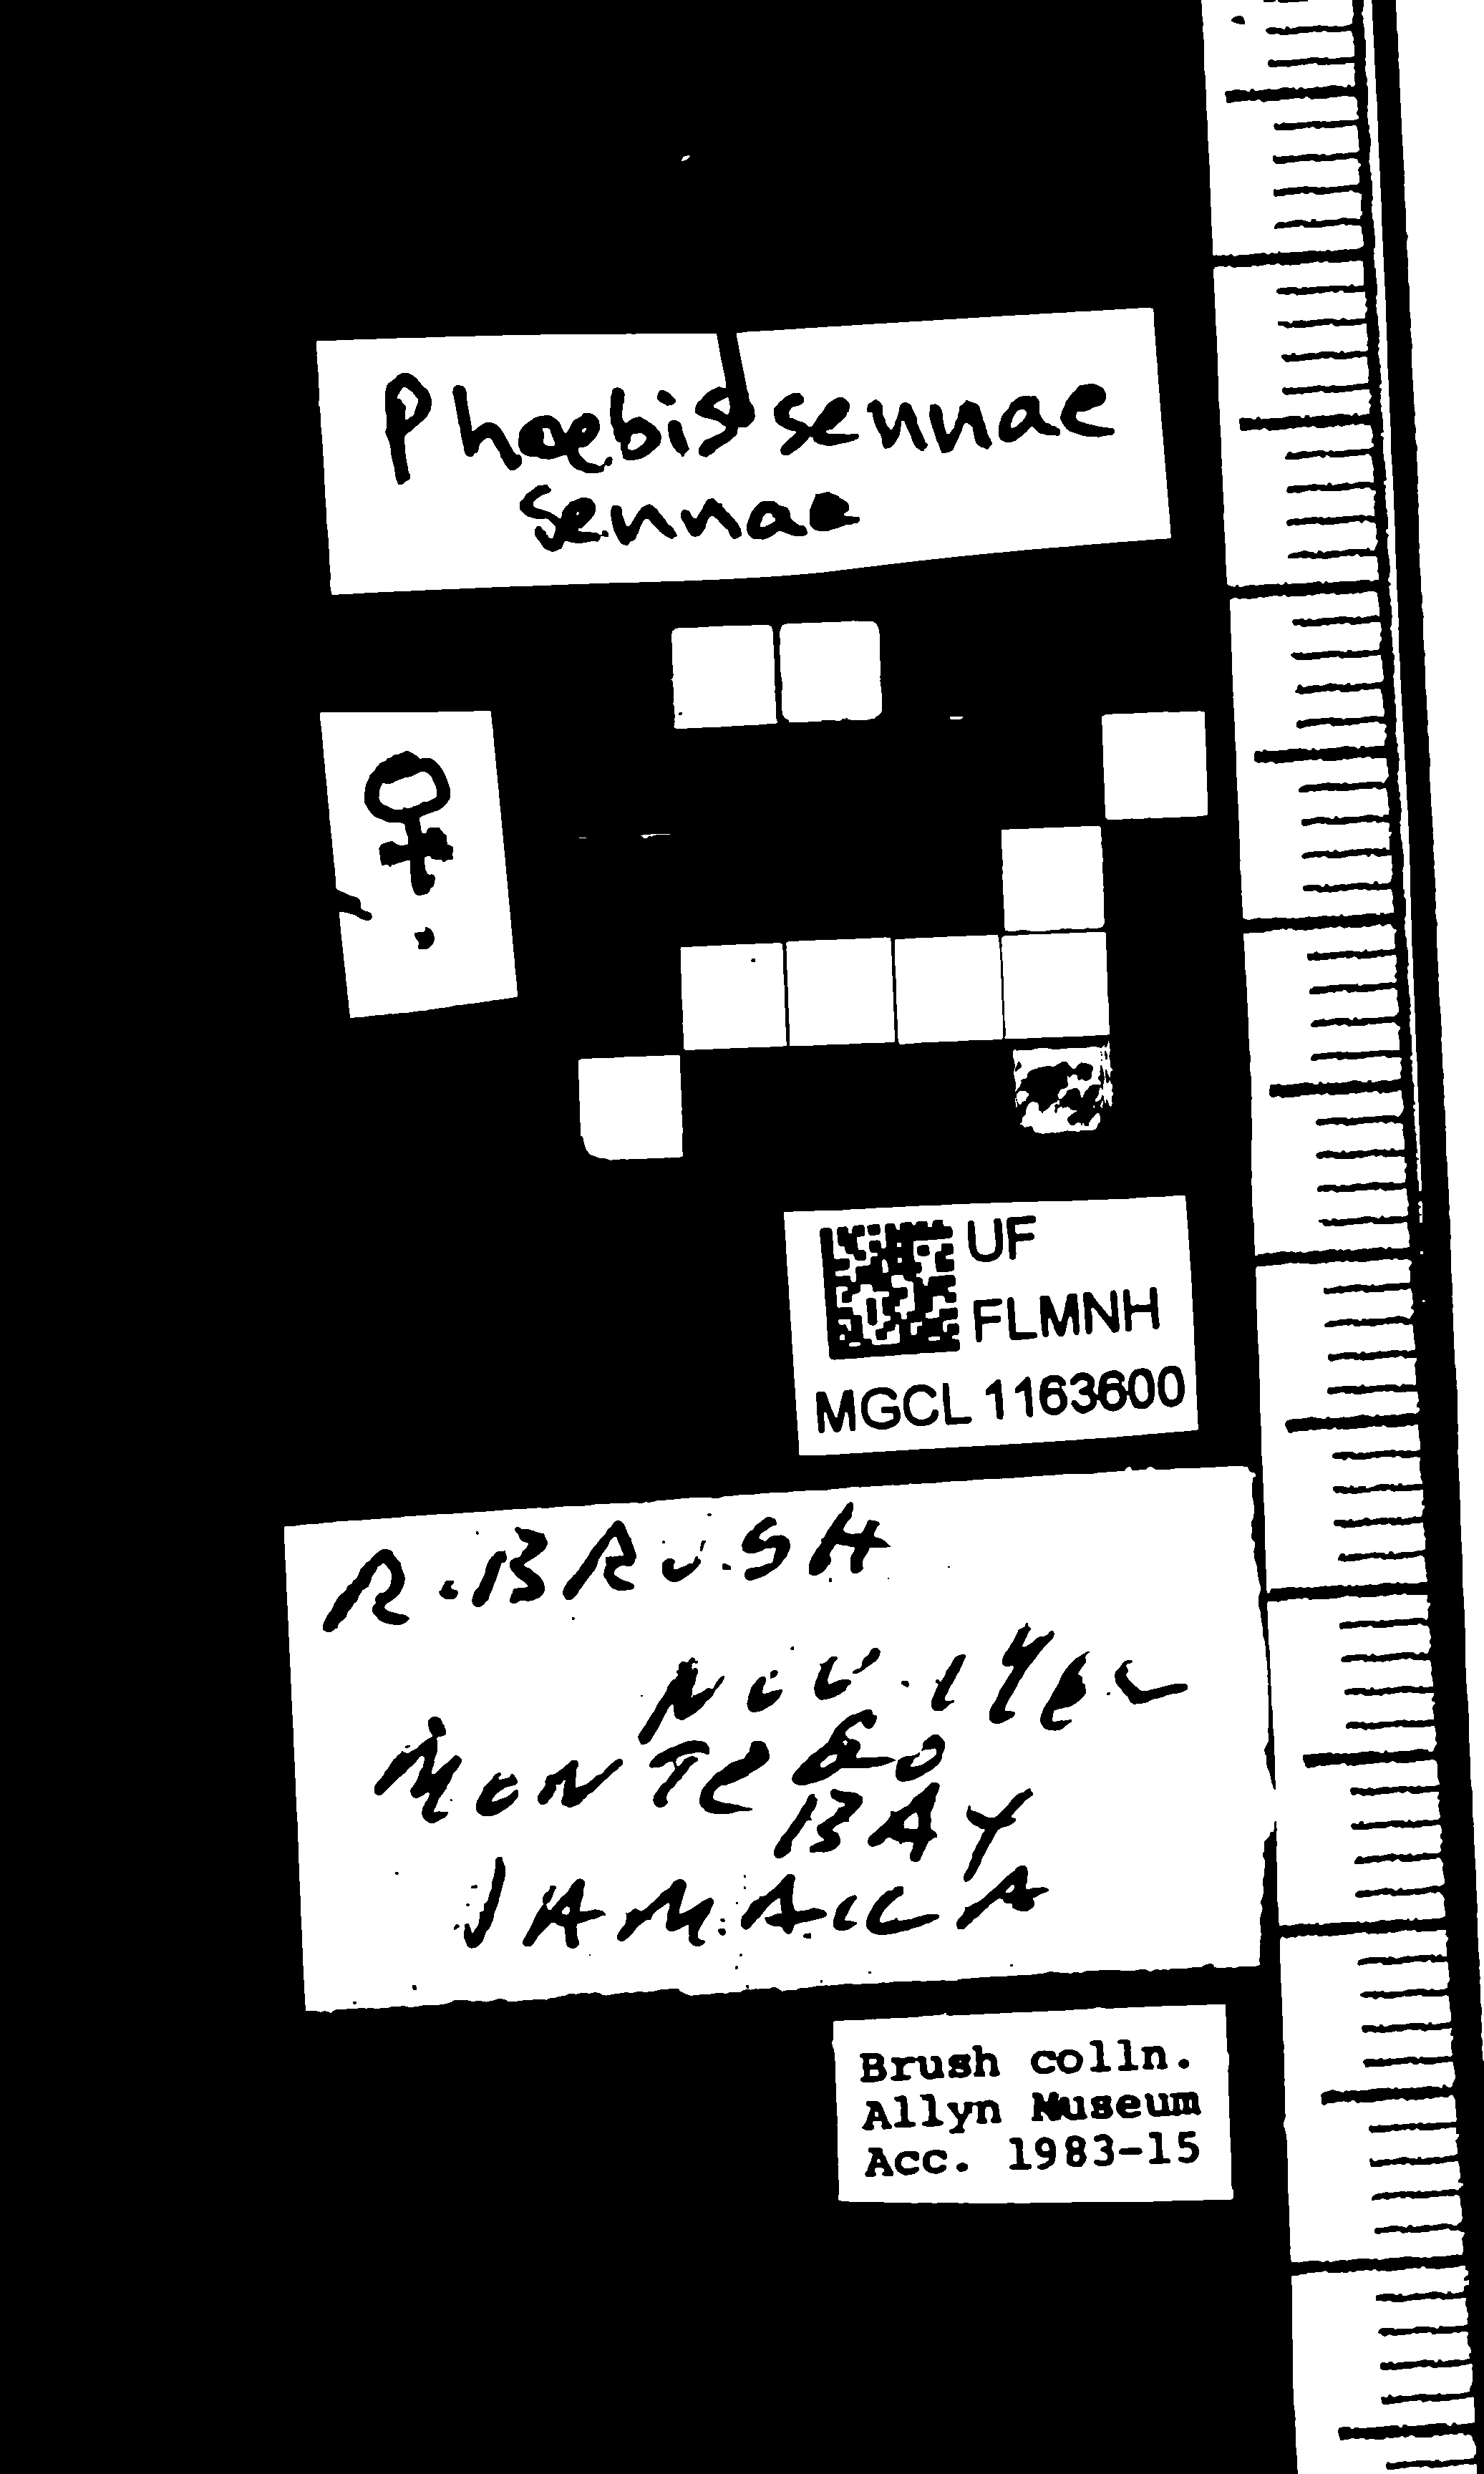 Phoebis sennae
sennae
♀
UF
FLMNH
MGCL 1163600
R. BRUSH
NOV.
MONTEGO
BAY
JAMAICA
Brush colln.
Allyn Museum
Acc. 1983-15